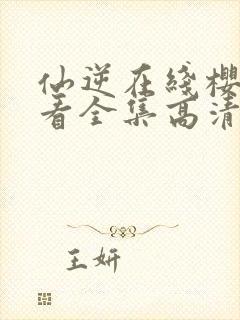 仙逆在线樱
看全集高清
王妍